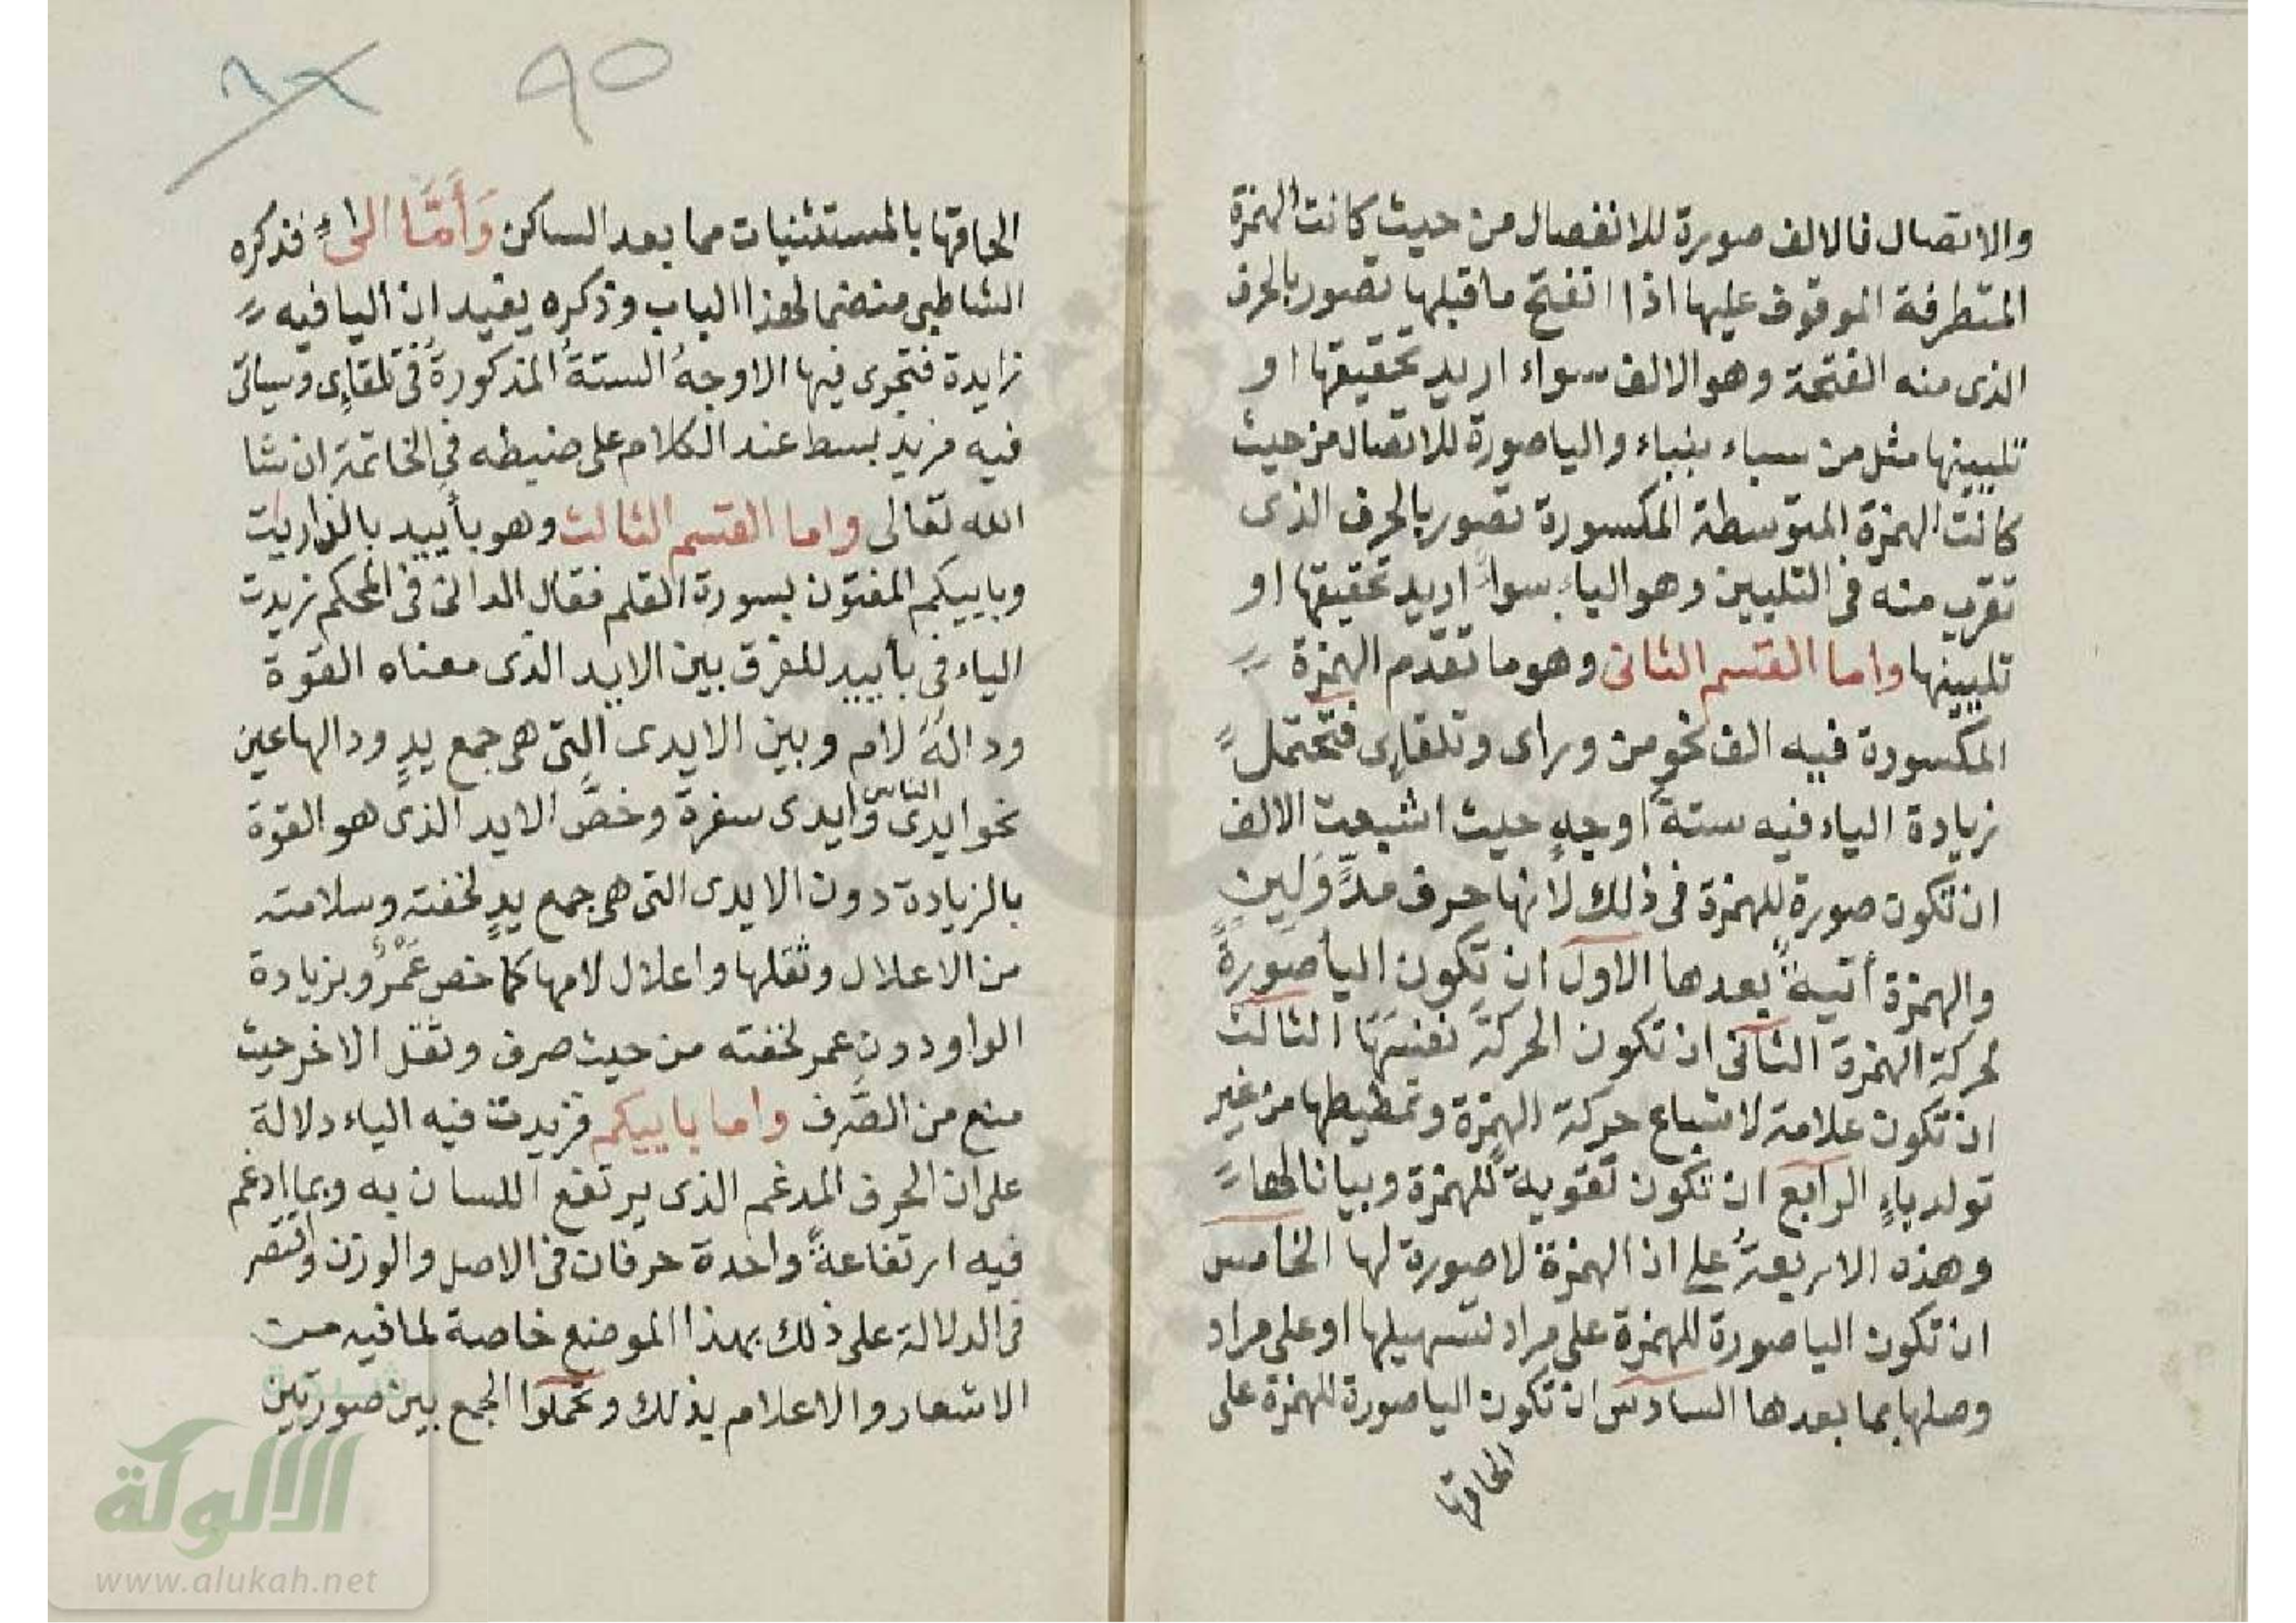 والاتصال فالالف صورة للانفصال من حيث كانت الهمزة
المتطرفة الموقوف عليها اذا انفتح ما قبلها تصور بالحرف
الذى منه الفتحة وهو الالف سواء اريد تحقيقها او
تليينها مثل من سباء بنباء واليا صورة للاتصال من حيث
كانت الهمزة المتوسطة المكسورة تصور بالحرف الذى
تقرب منه فى التليين وهو الياء سواءً اريد تحقيقها او
تليينها واما القسم الثانى وهو ما تقدم الهمزة
المكسورة فيه الف نحو من وراى وتلقاءِى فتحتمل
زيادة الياء فيه ستةَ اوجهٍ حيث اشبعت الالف
ان تكون صورة للهمزة فى ذلك لانها حرف مدٍّ وَلِينٍ
والهمزة أتيةٌ بعدها الاول ان تكون اليأ صورةً
لحركةِ الهمزة الثانى ان تكون الحركةَ نفسَهَا الثالث
ان تكون علامة لاشباع حركة الهمزة وتمطيطها من غير
تولد ياءٍ الرابع ان تكون تقوية للهمزة وبيانا لها
وهذه الاربعةُ على ان الهمزة لا صورة لها الخامس
ان تكون اليا صورة للهمزة على مراد تسهيلها او على مراد
وصلها بما بعدها السادس ان تكون اليا صورة للهمزة على
الحاقها
٩٥
الحاقها بالمستثنيات مما بعد الساكن وَأَمَّا الىءِ فذكره
الشاطبى منضما لهذا الباب وذكره يفيد ان اليا فيه
زايدة فتجرى فيها الاوجهُ الستةُ المذكورةُ فى تلقاءِى وسياتى
فيه مزيد بسط عند الكلام على ضبطه فى الخاتمة ان شا
الله تعالى واما القسم الثالث وهو بأييد بالذاريت
وباييكم المفتون بسورة القلم فقال الدانى فى المحكم زيدت
الياء فى بأييد للفرق بين الايد الذى معناه القوة
ودالهُ لام وبين الايدى التى هى جمع يدٍ ودالها عين
نحو ايدى الناس وايدى سفرة وخصَّ الايد الذى هو القوة
بالزيادة دون الايدى التى هى جمع يدٍ لخفته وسلامته
من الاعلال وثقلها واعلال لامها كما خص عَمْرٌو بزيادة
الواو دون عمر لخفته من حيث صرف وثقل الاخر حيث
منع من الصَّرف واما باييكم فزيدت فيه الياء دلالة
على ان الحرف المدغم الذى يرتفع اللسان به وبما ادغم
فيه ارتفاعةً واحدة حرفان فى الاصل والوزن واقتصر
فى الدلالة على ذلك بهذا الموضع خاصة لما فيه من
الاشعار والاعلام بذلك وتحملوا الجمع بين صورتين
شبكة
الألوكة
www.alukah.net